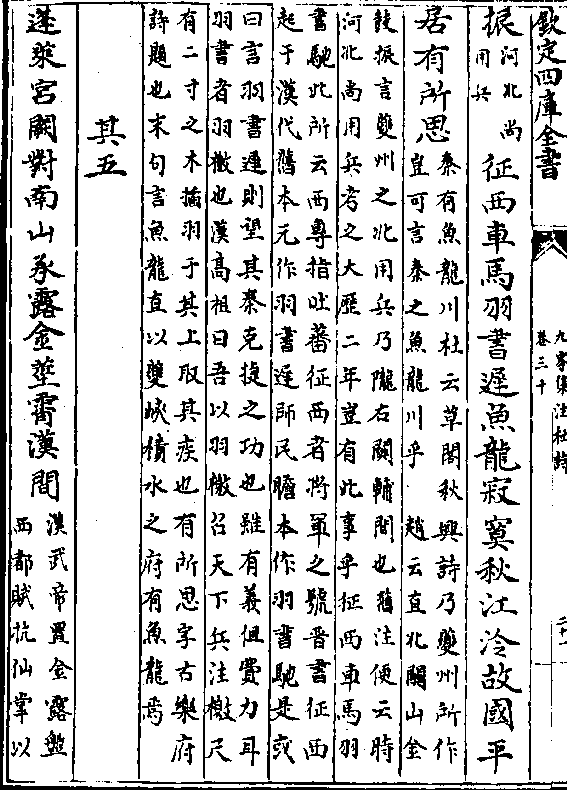 欽定四庫全書
九家集注杜詩
卷三十
二十一
振
河北尚
用兵
征西車馬羽書遲魚龍寂寞秋江冷故國平
居有所思
秦有魚龍川杜云草閣秋興詩乃夔州所作
豈可言秦之魚龍川乎 趙云直北關山金
鼓振言夔州之北用兵乃隴右關輔間也舊注便云時
河北尚用兵考之大歷二年豈有此事乎征西車馬羽
書馳此所云西專指吐蕃征西者將軍之號晉書征西
起于漢代舊本元作羽書遲師民瞻本作羽書馳是或
曰言羽書遲則望其奏克捷之功也雖有義但費力耳
羽書者羽檄也漢高祖曰吾以羽檄召天下兵注檄尺
有二寸之木插羽于其上取其疾也有所思字古樂府
詩題也末句言魚龍直以夔峽積水之府有魚龍焉
其五
蓬萊宮闕對南山承露金莖霄漢間
漢武帝置金露盤
西都賦抗仙掌以